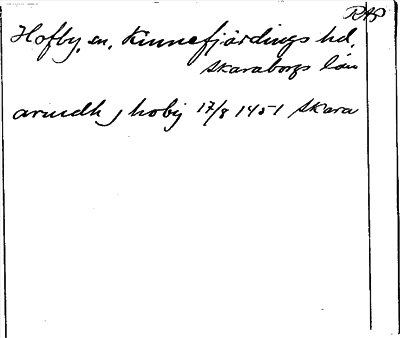 RAP
Hofby, sn, Kinnefjärdings hd,
Skaraborgs län
arundh j hoby 17/8 1451 Skara